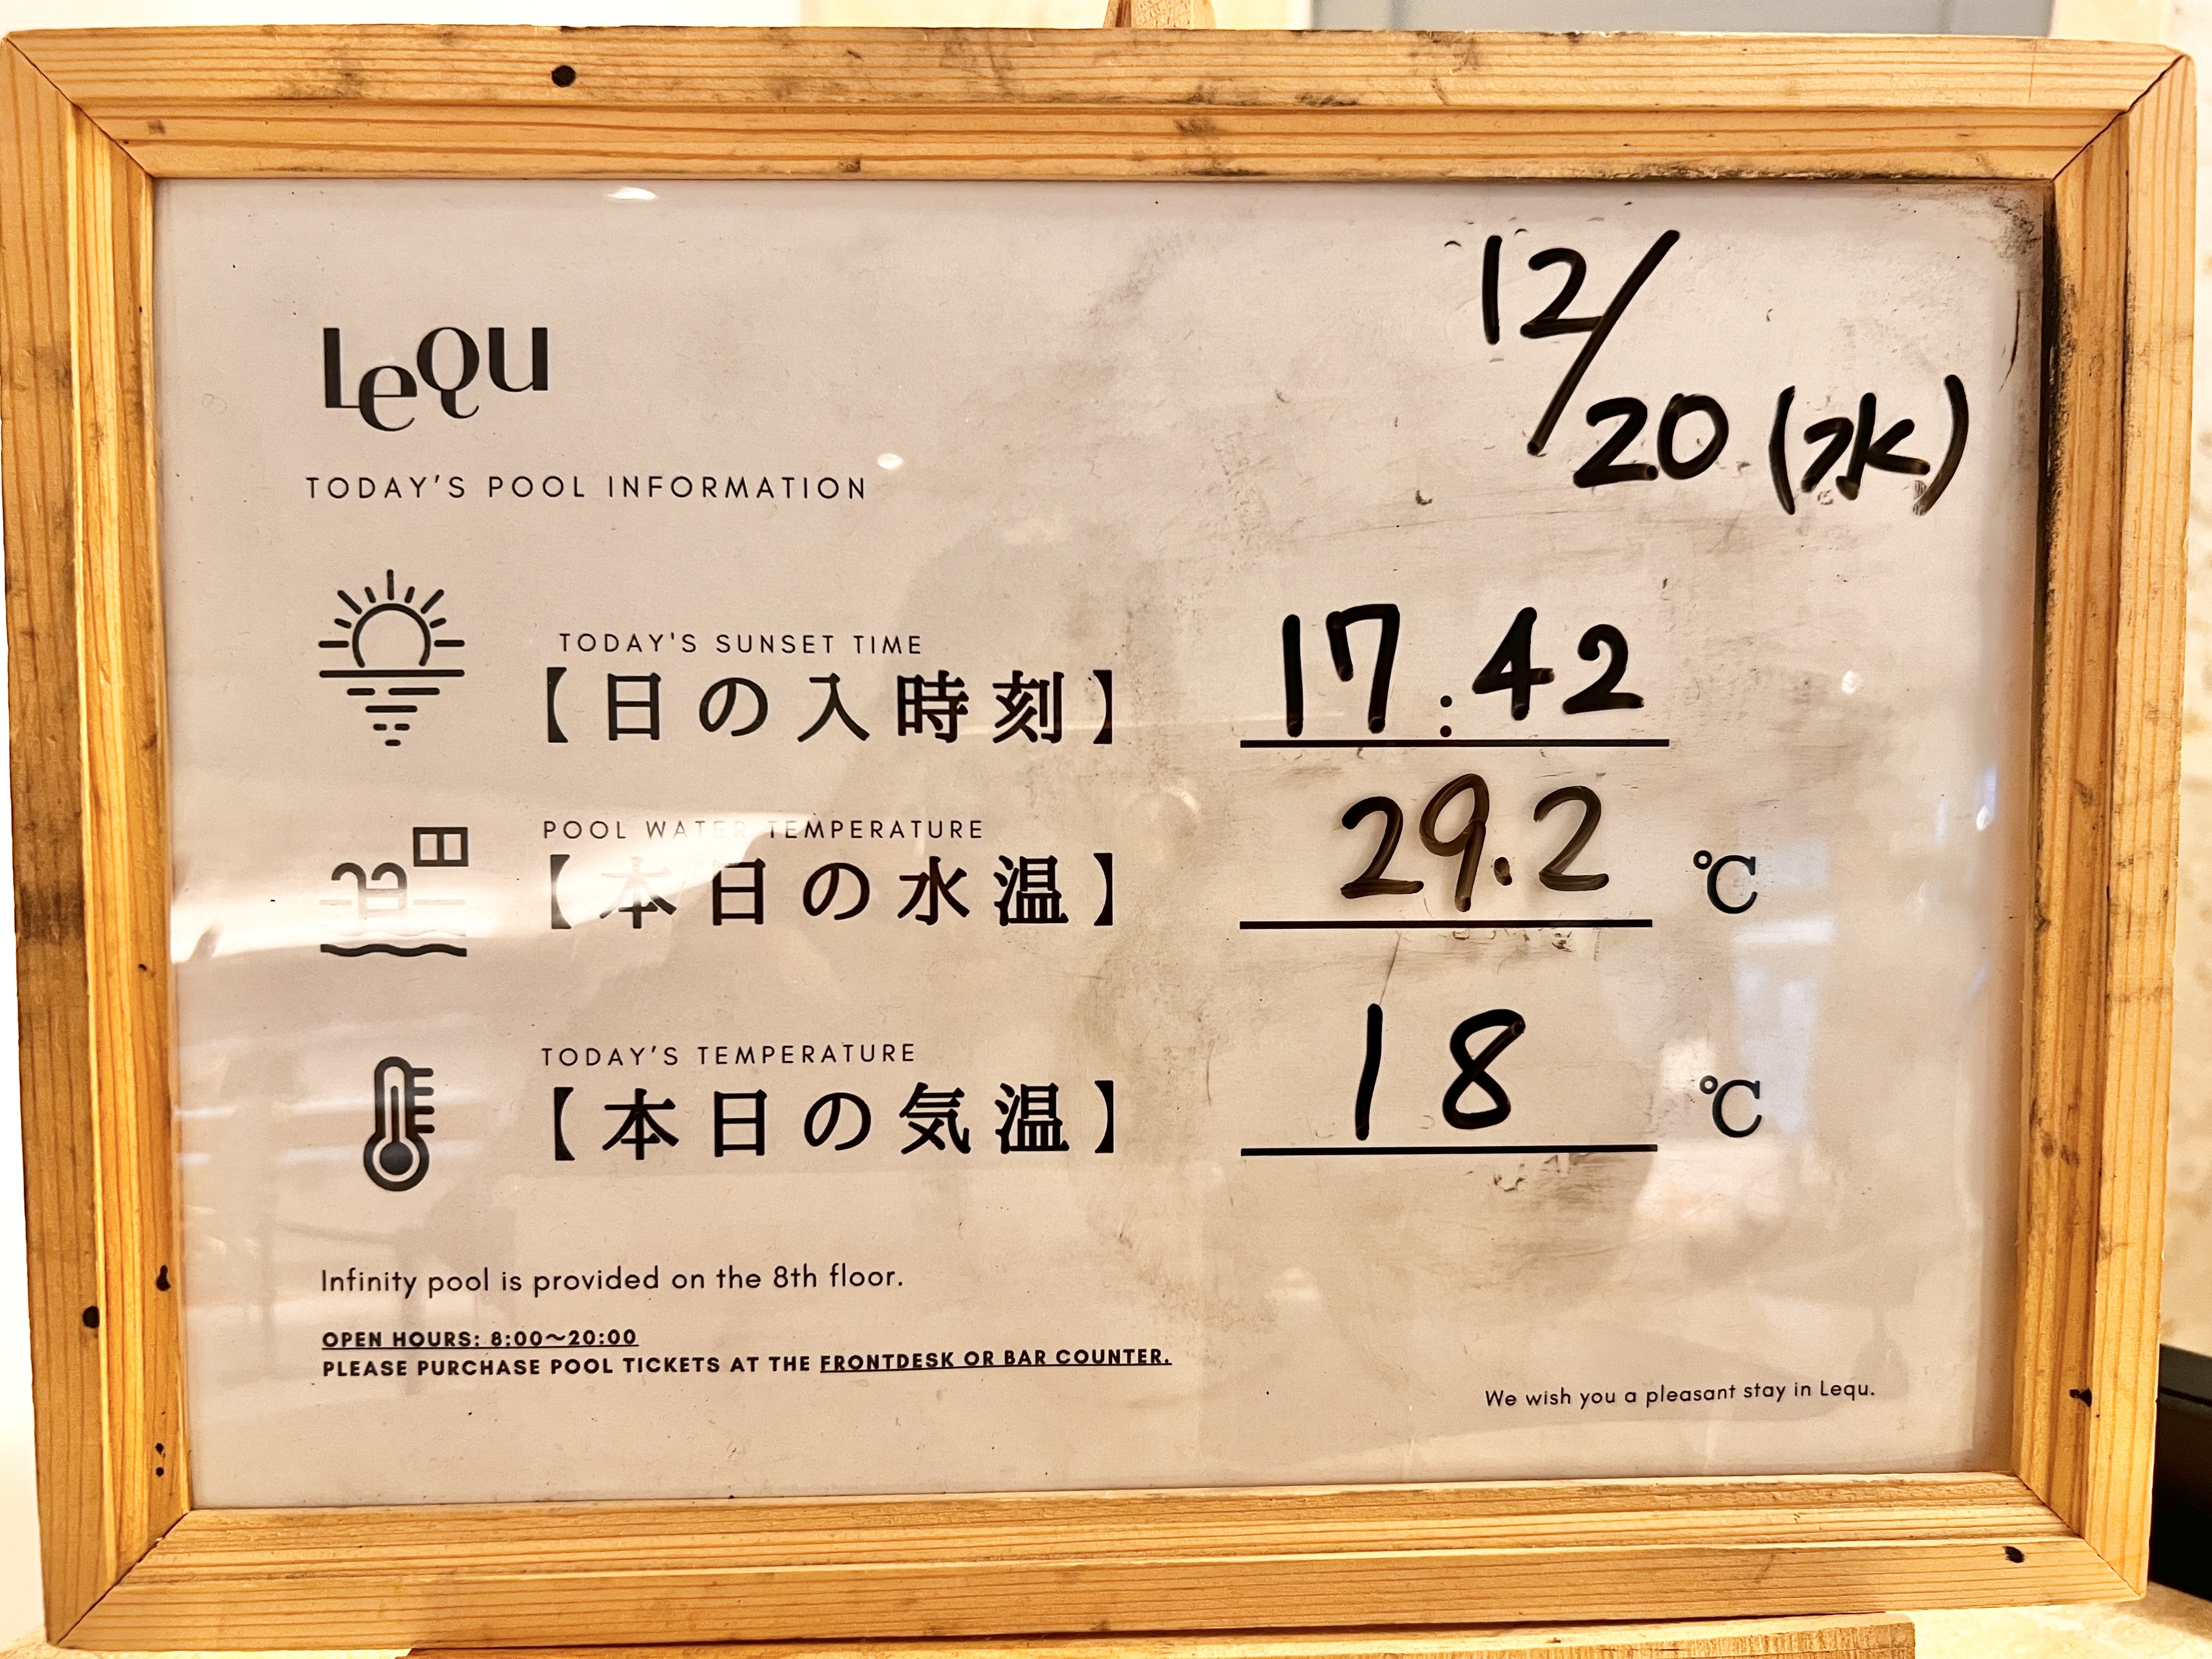 Lequ
12/20(水)
TODAY'S POOL INFORMATION
TODAY'S SUNSET TIME
【日の入時刻】 17:42
POOL WATER TEMPERATURE
【本日の水温】 29.2 ℃
TODAY'S TEMPERATURE
【本日の気温】 18 ℃
Infinity pool is provided on the 8th floor.
OPEN HOURS: 8:00〜20:00
PLEASE PURCHASE POOL TICKETS AT THE FRONTDESK OR BAR COUNTER.
We wish you a pleasant stay in Lequ.